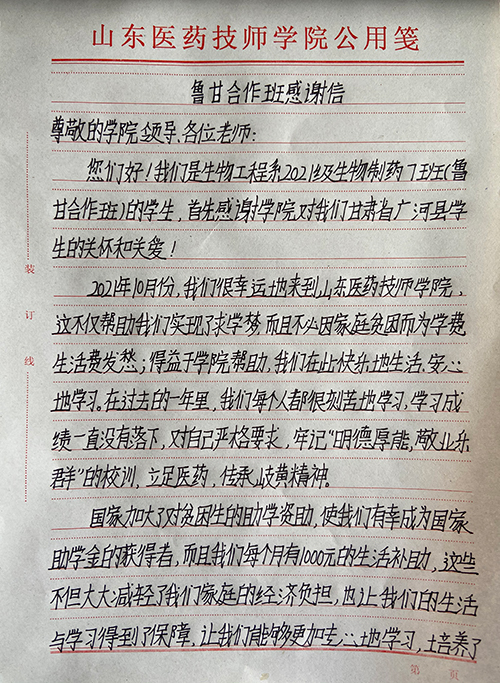 山东医药技师学院公用笺
鲁甘合作班感谢信
尊敬的学院领导、各位老师:
您们好!我们是生物工程系2021级生物制药7班(鲁
甘合作班)的学生,首先感谢学院对我们甘肃省广河县学
生的关怀和关爱!
2021年10月份,我们很幸运地来到山东医药技师学院,
这不仅帮助我们实现了求学梦而且不必因家庭贫困而为学费
生活费发愁;得益于学院帮助,我们在此快乐地生活、安心
地学习。在过去的一年里,我们每个人都很刻苦地学习,学习成
绩一直没有落下,对自己严格要求,牢记“明德厚能,敬业乐
群”的校训,立足医药,传承岐黄精神。
国家加大了对贫困生的助学资助,使我们有幸成为国家
助学金的获得者,而且我们每个月有1000元的生活补助,这些
不但大大减轻了我们家庭的经济负担,也让我们的生活
与学习得到了保障,让我们能够更加专心地学习,培养了
装
订
线
第 页